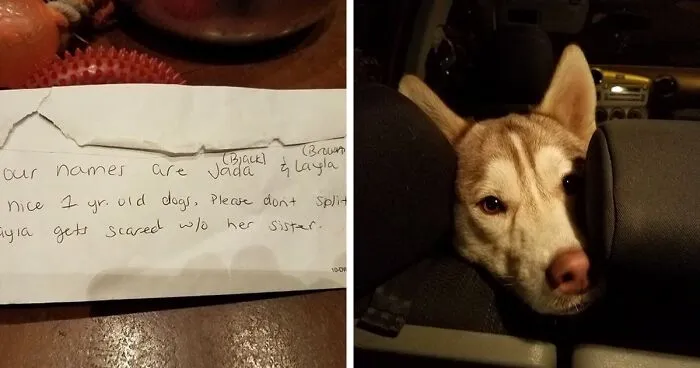 (Black) (Brown
our names are Jada & Layla
nice 1 yr. old dogs, Please dont split
ayla gets scared w/o her sister.